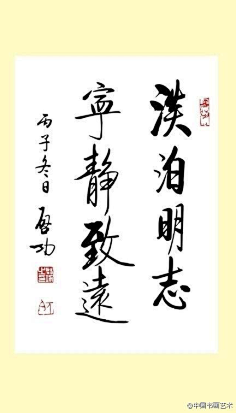 淡泊明志
寧静致遠
丙子冬日 啓功
@中国书画艺术